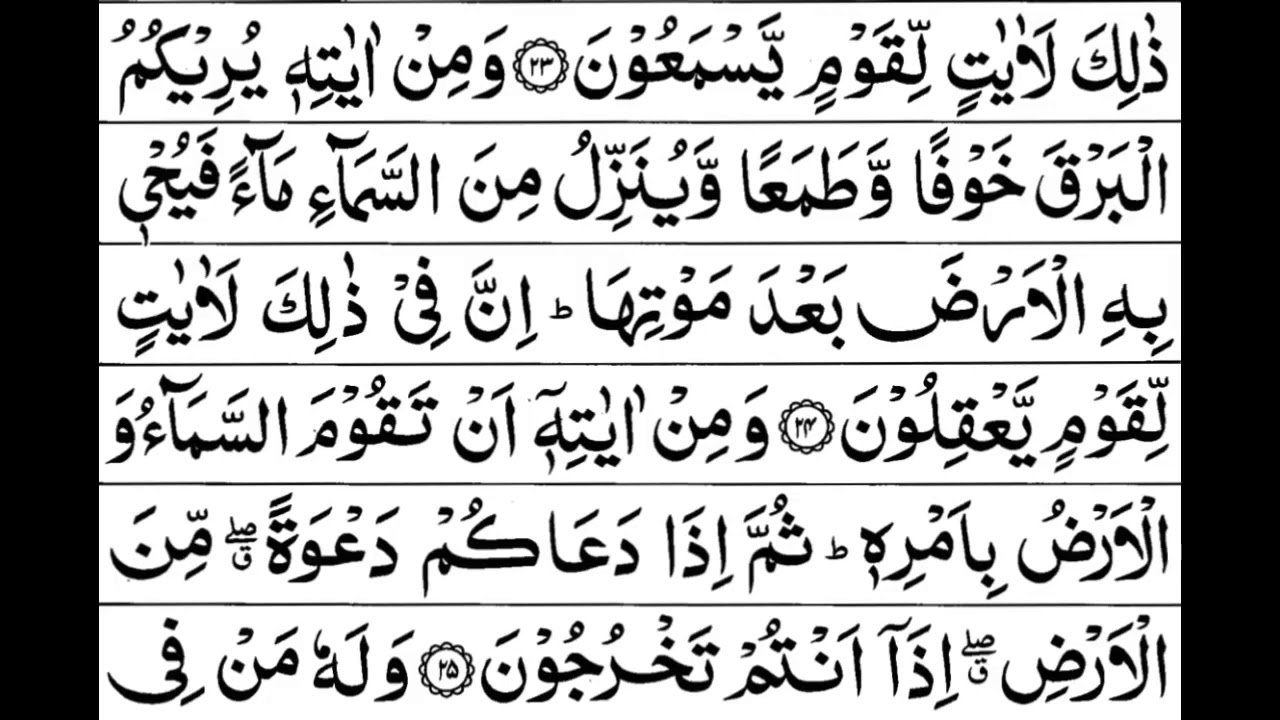 ذٰلِكَ لَاٰیٰتٍ لِّقَوْمٍ یَّسْمَعُوْنَ ۝۲۳ وَ مِنْ اٰیٰتِهٖ یُرِیْكُمُ
الْبَرْقَ خَوْفًا وَّ طَمَعًا وَّ یُنَزِّلُ مِنَ السَّمَآءِ مَآءً فَیُحْیٖ
بِهِ الْاَرْضَ بَعْدَ مَوْتِهَا ؕ اِنَّ فِیْ ذٰلِكَ لَاٰیٰتٍ
لِّقَوْمٍ یَّعْقِلُوْنَ ۝۲۴ وَ مِنْ اٰیٰتِهٖۤ اَنْ تَقُوْمَ السَّمَآءُ وَ
الْاَرْضُ بِاَمْرِهٖ ؕ ثُمَّ اِذَا دَعَاكُمْ دَعْوَةً ۖۗ مِّنَ
الْاَرْضِ ۖۗ اِذَاۤ اَنْتُمْ تَخْرُجُوْنَ ۝۲۵ وَ لَهٗ مَنْ فِی